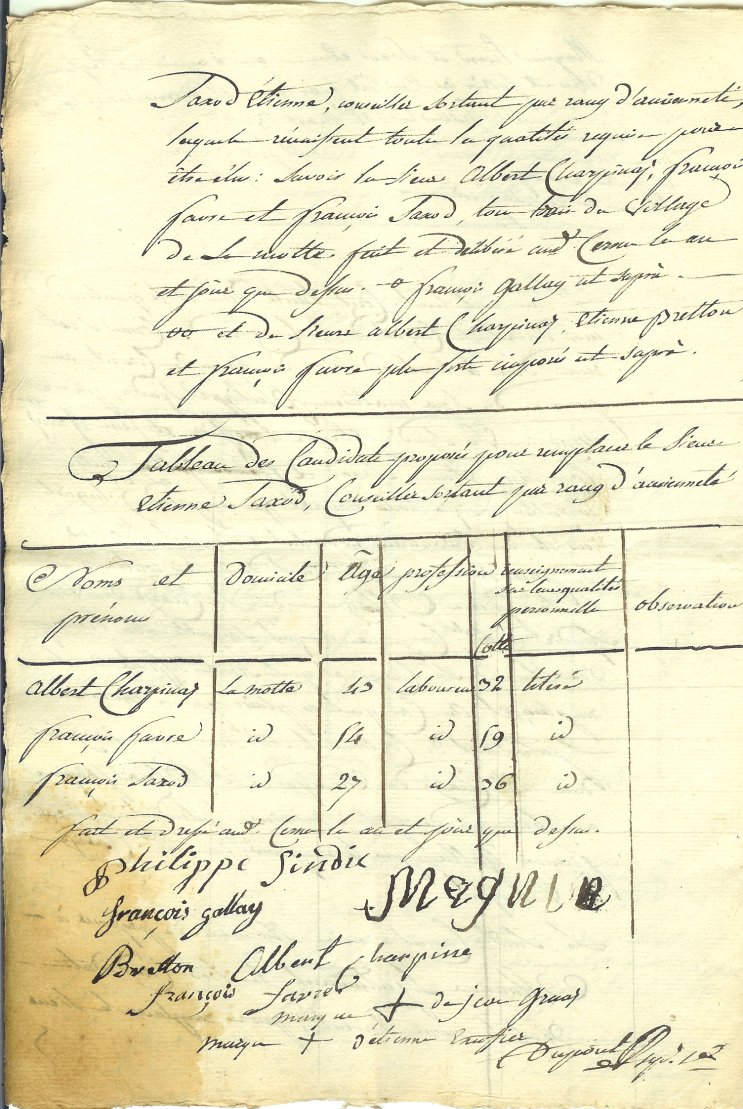 Taxod Étienne, conseiller sortant par rang d'ancienneté,
lesquels réunissent toute la qualités requise pour
être élu: Savoir le Sieur Albert Charpinaz, françois
favre et françois Taxod, tou trois du Village
de La motte. fait et délibéré aud.t Cernex le an
et jour que dessus. o françois gallay ut suprà. —
oo et de Sieurs albert Charpinaz, etienne Bretton
et françois favre plu fort imposés ut suprà.
Tableau des Candidats proposés pour remplacer le Sieur
etienne Taxod, Conseiller sortant par rang d'ancienneté
Noms et prénoms Domicile Âge profession Cotte renseignement sur leurs qualités personnelle observation
albert Charpinaz La motte 43 laboureur 32 litéré
françois favre id 54 id 59 id
françois Taxod id 27 id 36 id
fait et dressé aud.t Cernex le an et jour que dessus.
Philippe Sindic
françois gallay Magnin
Bretton Albert Charpine
françois favre
marque + de jean
marque + d'étienne
Dupont